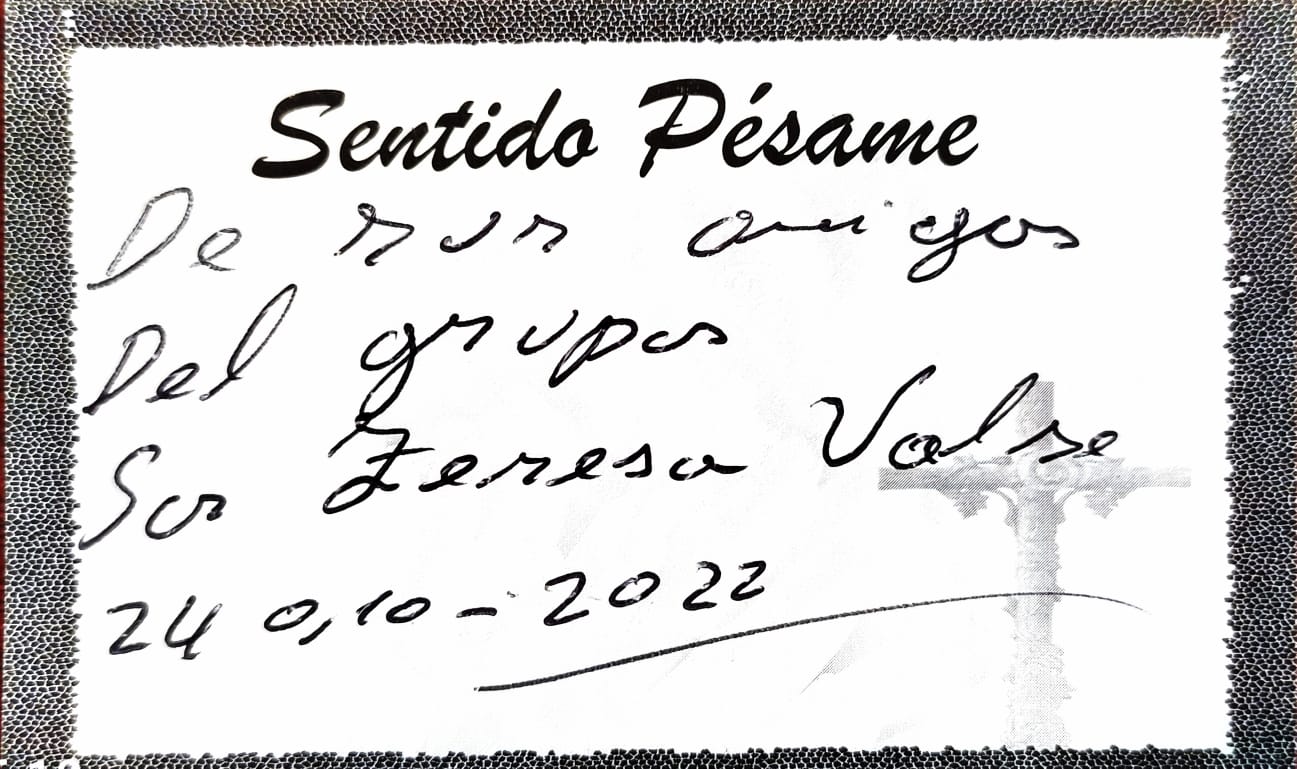 Sentido Pésame
De sus amigos
Del grupos
Sor Teresa Valse
24 0,10-2022